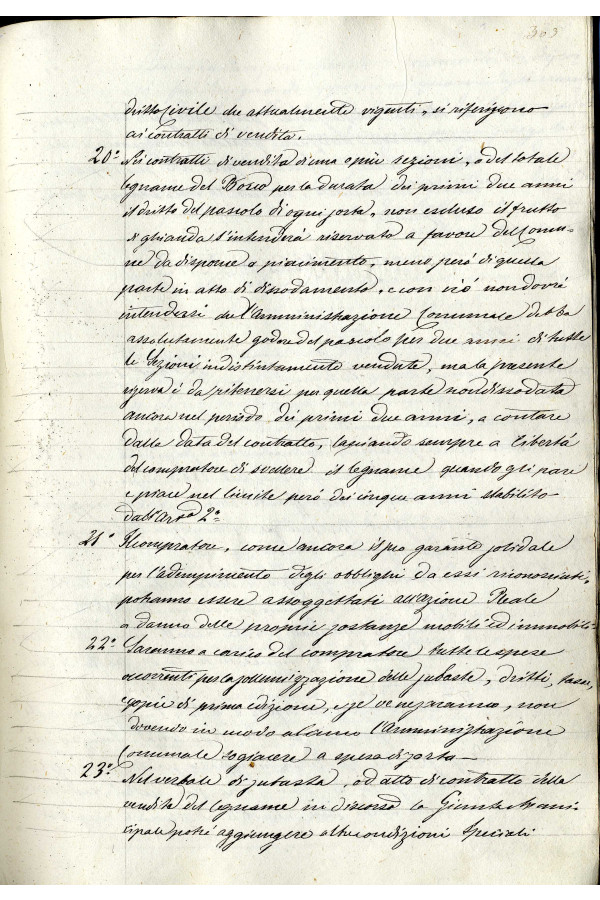 303
dritto Civile che attualmente vigenti, si riferiscono
ai contratti di vendita.
20° Nei contratti di vendita di una o più sezioni, o del totale
legname del Bosco per la durata dei primi due anni
il dritto del pascolo di ogni sorta, non escluso il frutto
di ghianda s'intenderà riservato a favore del Comu-
ne da disporne a piacimento, meno però di quella
parte in atto di dissodamento, e con ciò non dovrà
intendersi che l'Amministrazione Comunale debba
assolutamente godere del pascolo per due anni di tutte
le Sezioni indistintamente vendute, ma la presente
riserva è da ritenersi per quella parte non dissodata
ancora nel periodo dei primi due anni, a contare
dalla data del contratto, lasciando sempre a libertà
del compratore di svellere il legname quando gli pare
e piace nel limite però dei cinque anni stabilito
dall'Art° 2°
21° Il compratore, come ancora il suo garante solidale
per l'adempimento degli obblighi da essi riconosciuti,
potranno essere assoggettati all'azione Reale
a danno delle proprie sostanze mobili ed immobili
22° Saranno a carico del compratore tutte le spese
occorrenti per la solennizzazione delle subaste, dritti, tasse,
copie di prima edizione, e se ve ne saranno, non
dovendo in modo alcuno l'Amministrazione
Comunale soggiacere a spesa di sorta
23° Nel verbale di subasta, od atto di contratto della
vendita del legname in discorso la Giunta Muni-
cipale potrà aggiungere altre condizioni speciali